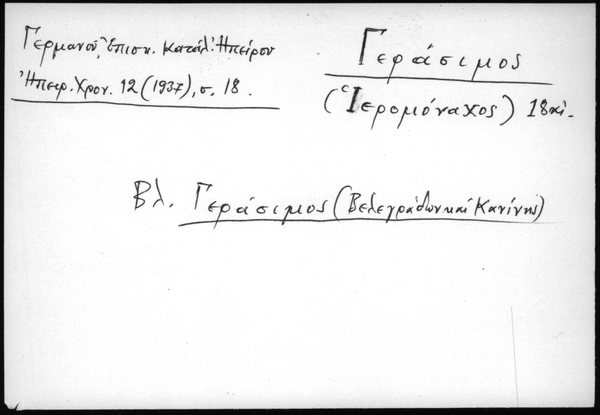 Γερμανοῦ, Ἐπισκ. Κατάλ. Ἠπείρου
Ἠπειρ. Χρον. 12 (1937), σ. 18.
Γεράσιμος
(Ἱερομόναχος) 18
Βλ. Γεράσιμος (Βελεγράδων καὶ Κανίνης)